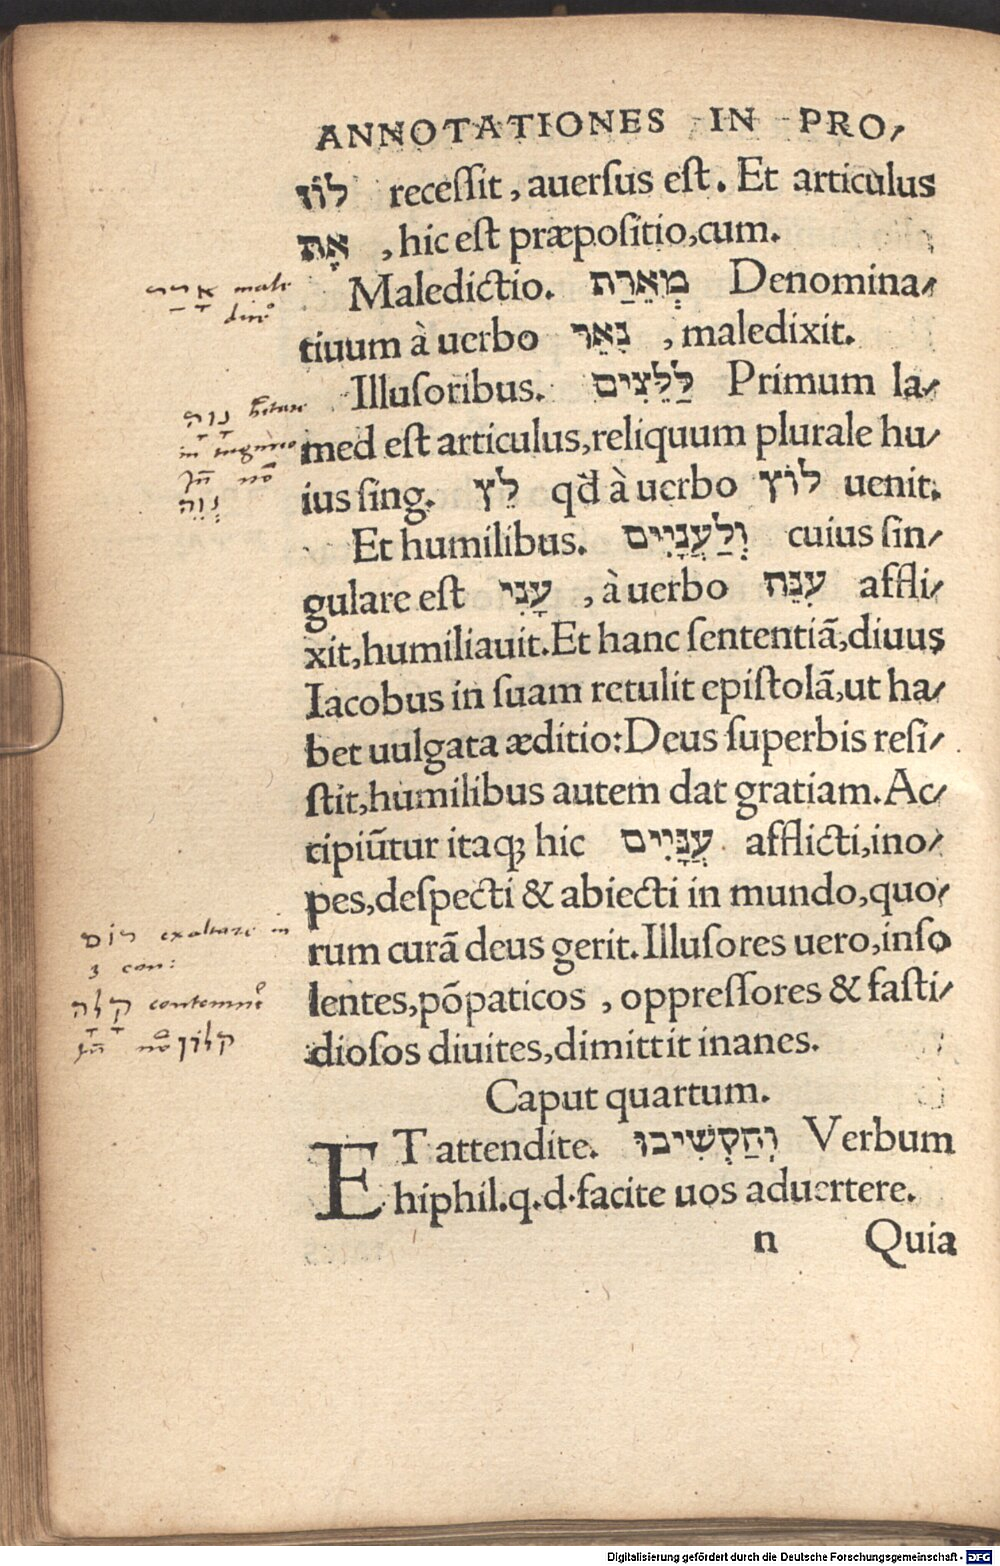 ANNOTATIONES IN PRO/
לוּז recessit, auersus est. Et articulus
אֶת , hic est præpositio,cum.
Maledictio. מְאֵרַת Denomina/
tiuum à uerbo נִאֵר , maledixit.
Illusoribus. לַלֵּצִים Primum la/
med est articulus,reliquum plurale hu/
ius sing. לֵץ qđ à uerbo לוּץ uenit.
Et humilibus. וְלַעֲנָיִים cuius sin/
gulare est עָנִי , à uerbo עִנָּה affli/
xit,humiliauit.Et hanc sententiā,diuus
Iacobus in suam retulit epistolā,ut ha/
bet uulgata æditio:Deus superbis resi/
stit,humilibus autem dat gratiam.Ac/
cipiūtur itaq; hic עֲנָיִים afflicti,ino/
pes,despecti & abiecti in mundo,quo/
rum curā deus gerit.Illusores uero,inso
lentes,pōpaticos , oppressores & fasti/
diosos diuites,dimittit inanes.
Caput quartum.
ET attendite. וְהַקְשִׁיבוּ Verbum
hiphil.q.d.facite uos aduertere.
n Quia
ארר male
נוה
נְוֵה
רום exaltare in
3 con:
קלה contemn
קלון
Digitalisierung gefördert durch die Deutsche Forschungsgemeinschaft - DFG